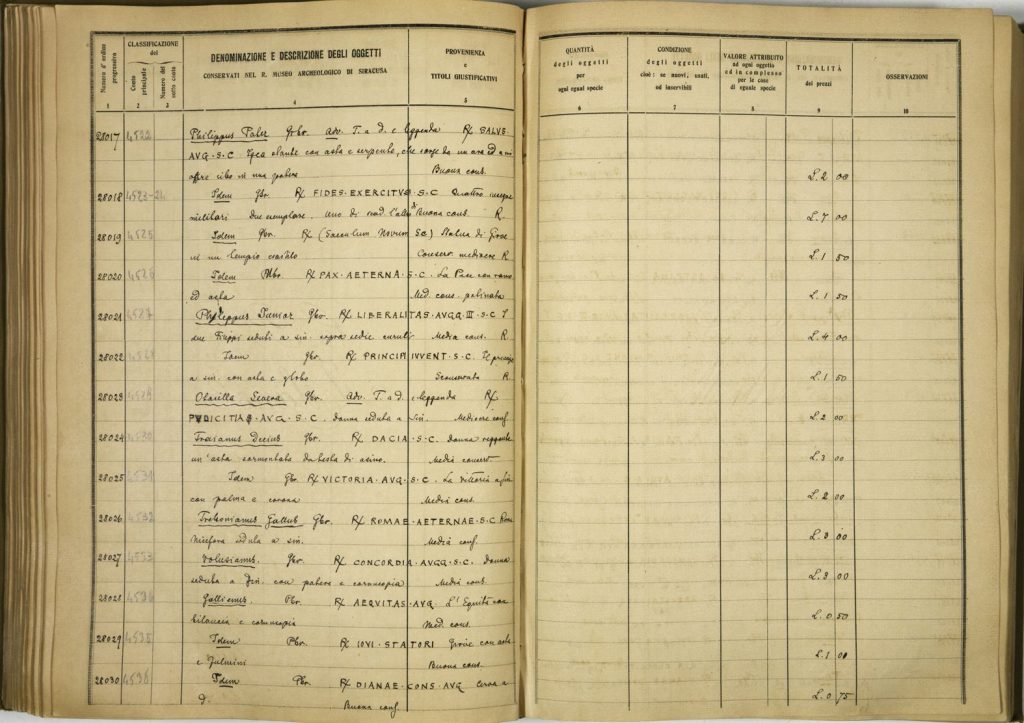 Numero d'ordine progressivo
CLASSIFICAZIONE del
Conto principale
Numero del sotto conto
DENOMINAZIONE E DESCRIZIONE DEGLI OGGETTI
CONSERVATI NEL R. MUSEO ARCHEOLOGICO DI SIRACUSA
PROVENIENZA
e
TITOLI GIUSTIFICATIVI
QUANTITÀ
degli oggetti
per
ogni egual specie
CONDIZIONE
degli oggetti
cioè: se nuovi, usati,
od inservibili
VALORE ATTRIBUITO
ad ogni oggetto
ed in complesso
per le cose
di eguale specie
TOTALITÀ
dei prezzi
OSSERVAZIONI
1 2 3 4 5 6 7 8 9 10
28017 4522 Philippus Pater Gbr. Adv. T. a d. e leggenda R/ SALUS·
AUG·S·C stante con asta e serpente, che sorge da un ara ed a cui
offre cibo in una patera Buona cons. L. 2 00
28018 4523-24 Idem Gbr R/ FIDES·EXERCITUS·S·C Quattro insegne
militari due esemplare. Uno di Buona cons. R. L. 7 00
28019 4525 Idem Gbr. R/ (Saeculum Novum S.C) Statua di Giove
in un tempio Conserv. mediocre R L. 1 50
28020 4526 Idem Mbr R/ PAX·AETERNA·S·C. La Pace con ramo
ed asta Med. cons. patinata L. 1 50
28021 4527 Philippus Junior Gbr. R/ LIBERALITAS·AUGG·III·S·C I
due Filippi seduti a sin. sopra sedie curuli Media cons. R. L. 4 00
28022 4528 Idem Gbr. R/ PRINCIPI IUVENT·S·C. Il principe
a sin. con asta e globo Sconservata R. L. 1 50
28023 4529 Otacilla Severa Gbr. Adv. T. a d. e leggenda R/
PUDICITIAE·AUG·S·C. donna seduta a sin. Mediocre cons. L. 2 00
28024 4530 Traianus Decius Gbr. R/ DACIA·S·C. donna reggente
un'asta sormontata da testa di asino. Media conserv. L. 3 00
28025 4531 Idem Gbr R/ VICTORIA·AUG·S·C. La Vittoria a sin
con palma e corona Media cons. L. 2 00
28026 4532 Trebonianus Gallus Gbr. R/ ROMAE·AETERNAE·S·C Roma
Nicefora seduta a sin. Media cons. L. 3 00
28027 4533 Volusianus. Gbr. R/ CONCORDIA·AUGG·S·C. donna
seduta a sin. con patera e cornucopia Media cons. L. 3 00
28028 4534 Gallienus. Pbr. R/ AEQUITAS·AUG. L'Equità con
bilancia e cornucopia Med. cons. L. 0 50
28029 4535 Idem Pbr. R/ IOVI·STATORI Giove con asta
e fulmini Buona cons. L. 1 00
28030 4536 Idem Pbr. R/ DIANAE·CONS·AUG Cerva a
d. Buona cons. L. 0 75